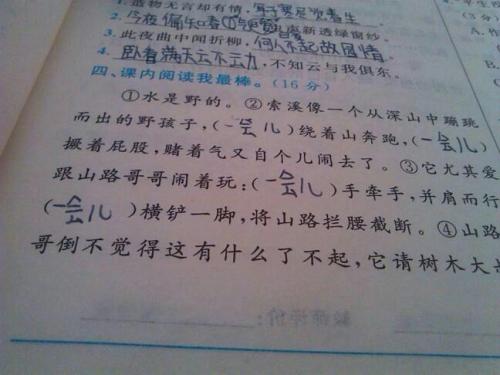 1.造物无言却有情,每于寒尽觉春生
2.今夜偏知春气暖,虫声新透绿窗纱。
3.此夜曲中闻折柳,何人不起故园情。
4.卧看满天云不动,不知云与我俱东。
四、课内阅读我最棒。(16分)
①水是野的。②索溪像一个从深山中蹦跳
而出的野孩子,(一会儿)绕着山奔跑,(一会儿)
撅着屁股,赌着气又自个儿闹去了。③它尤其爱
跟山路哥哥闹着玩:(一会儿)手牵手,并肩而行
(一会儿)横铲一脚,将山路拦腰截断。④山路
哥倒不觉得这有什么了不起,它请树木大
教师评价:
(3分)
A.作
B.